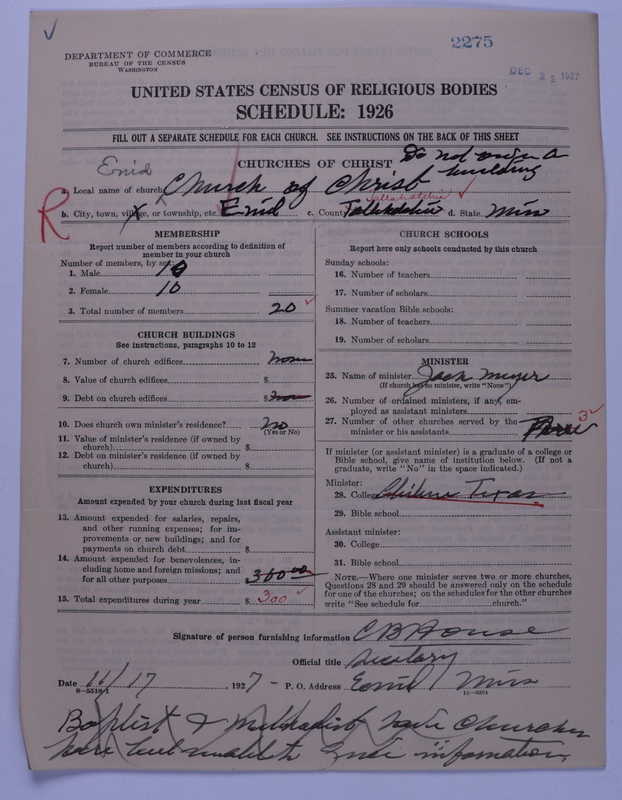 2275
DEC 22 1927
DEPARTMENT OF COMMERCE
BUREAU OF THE CENSUS
WASHINGTON
UNITED STATES CENSUS OF RELIGIOUS BODIES
SCHEDULE: 1926
FILL OUT A SEPARATE SCHEDULE FOR EACH CHURCH. SEE INSTRUCTIONS ON THE BACK OF THIS SHEET
CHURCHES OF CHRIST
Do not own a
building
Enid
a. Local name of church Church of Christ
Tallahatchie
R
b. City, town, village, or township, etc. Enid c. County d. State Miss
MEMBERSHIP
Report number of members according to definition of
member in your church
Number of members, by sex:
1. Male 10
2. Female 10
3. Total number of members 20
CHURCH BUILDINGS
See instructions, paragraphs 10 to 12
7. Number of church edifices none
8. Value of church edifices $
9. Debt on church edifices $ none
10. Does church own minister's residence? no
(Yes or No)
11. Value of minister's residence (if owned by
church) $
12. Debt on minister's residence (if owned by
church) $
EXPENDITURES
Amount expended by your church during last fiscal year
13. Amount expended for salaries, repairs,
and other running expenses; for im-
provements or new buildings; and for
payments on church debt $
14. Amount expended for benevolences, in-
cluding home and foreign missions; and
for all other purposes 300 00
15. Total expenditures during year $ 300
CHURCH SCHOOLS
Report here only schools conducted by this church
Sunday schools:
16. Number of teachers
17. Number of scholars
Summer vacation Bible schools:
18. Number of teachers
19. Number of scholars
MINISTER
25. Name of minister Jack Meyer
(If church has no minister, write "None")
26. Number of ordained ministers, if any, em-
ployed as assistant ministers
27. Number of other churches served by the
minister or his assistants 3
If minister (or assistant minister) is a graduate of a college or
Bible school, give name of institution below. (If not a
graduate, write "No" in the space indicated.)
Minister:
28. College Abilene Texas
29. Bible school
Assistant minister:
30. College
31. Bible school
NOTE.—Where one minister serves two or more churches,
Questions 28 and 29 should be answered only on the schedule
for one of the churches; on the schedules for the other churches
write "See schedule for church."
Signature of person furnishing information C B House
Official title Secretary
Date 11/17, 1927 P. O. Address Enid Miss
8—5518-1 11—9204
Baptist & Methodist have Churches
here but unable to information